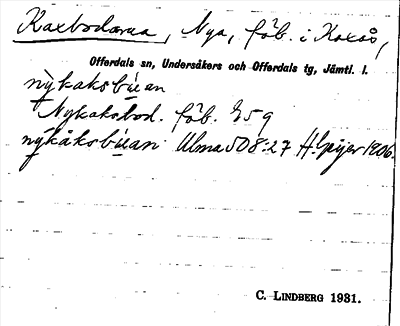 Kaxbodarna, Nya, fäb. i Kaxås,
Offerdals sn, Undersåkers och Offerdals tg, Jämtl. l.
nỳkaksbùan
Nykaksbod. fäb. G59
nỳkåksbùan Ulma 508:27 H. Geijer 1906.
C. LINDBERG 1931.